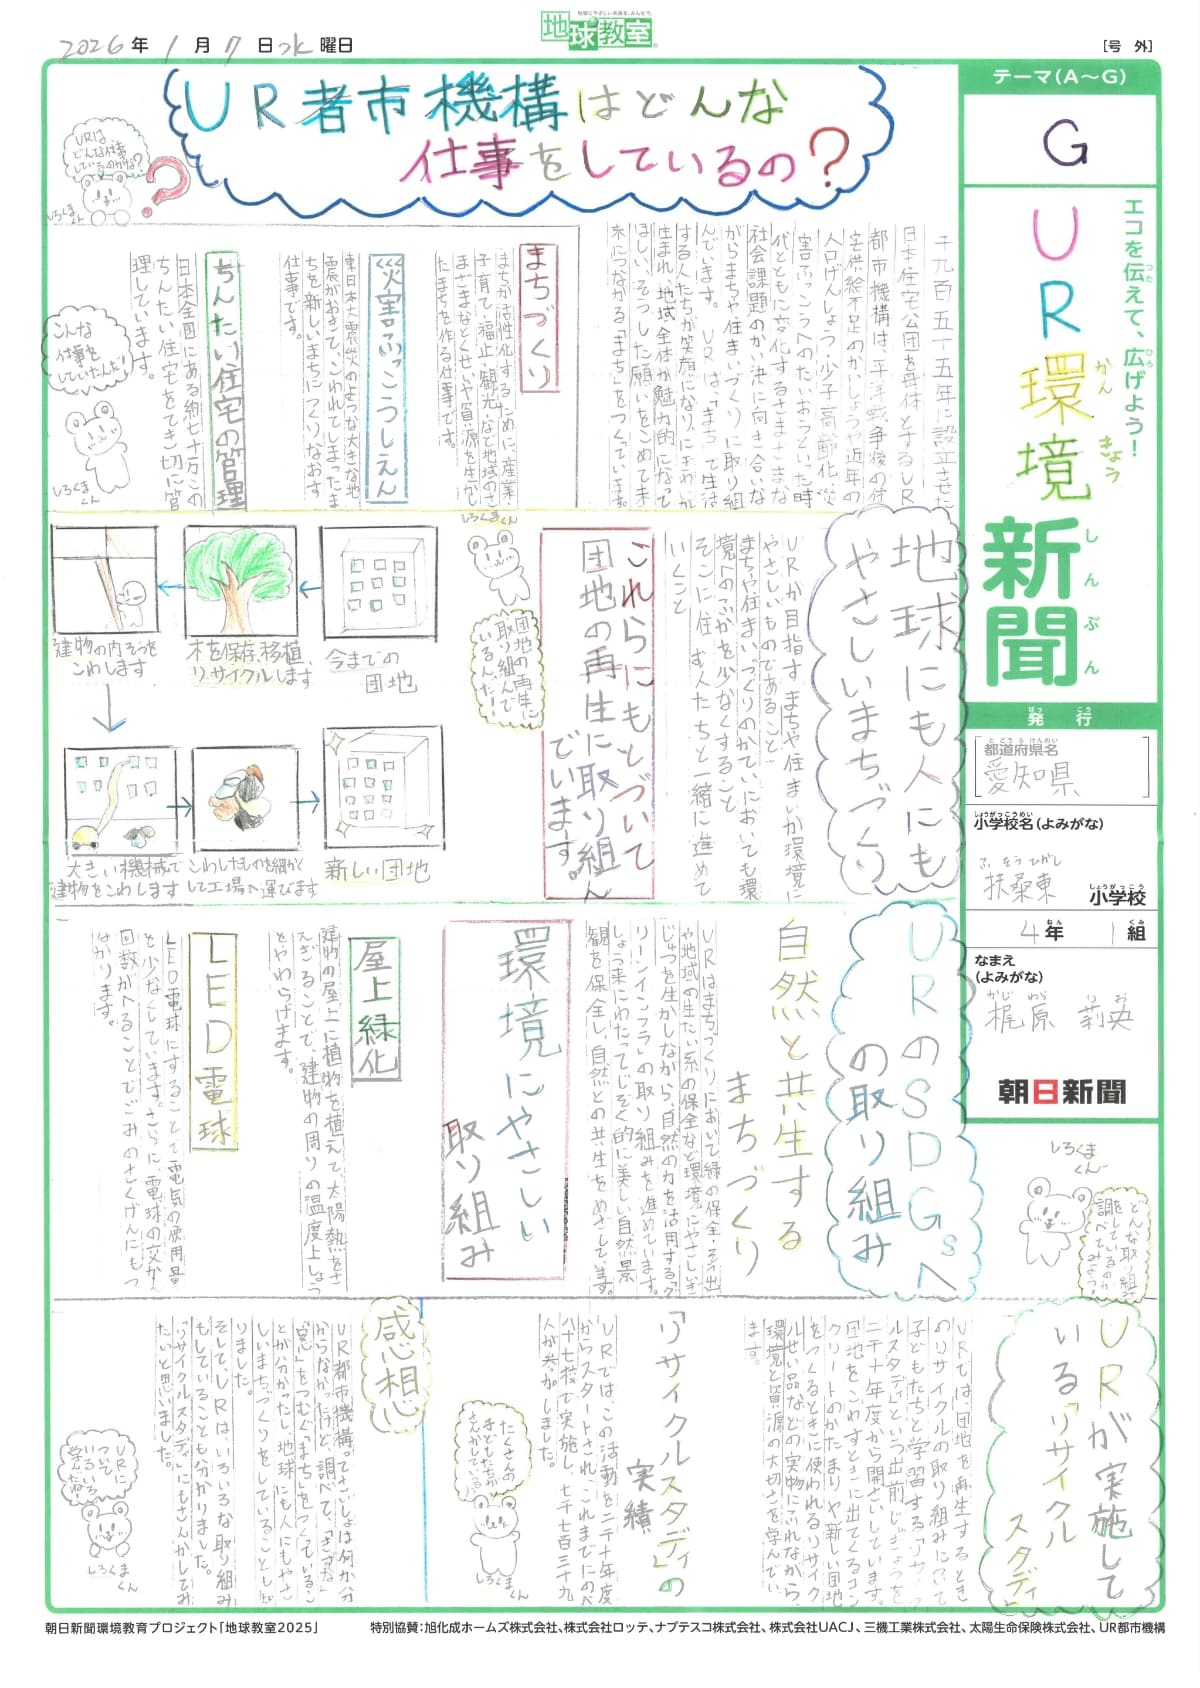 地球にやさしい知識を、みんなで。
地球教室
2026年1月7日水曜日
[号 外]
テーマ(A〜G)
G
エコを伝えて、広げよう!
つた
ひろ
UR環境
かん
きょう
新聞
しんぶん
発行
はっ こう
都道府県名
と どう ふ けんめい
愛知県
小学校名(よみがな)
しょうがっこうめい
ふ そう ひがし
扶桑東
小学校
しょうがっこう
4年 1組
ねん
くみ
なまえ
(よみがな)
かじ わら り お
梶原 莉央
朝日新聞
UR者市機構はどんな
仕事をしているの?
URは
どんな仕事
しているのかな?
しろくま
くん
千九百五十五年に設立させた
日本住宅公団を母体とするUR
都市機構は、太平洋戦争後の住
宅供給不足のかいしょうや近年の
人口げんしょう・少子高齢化、災
害ふっこうへのたいおうといった時
代とともに変化するさまざまな
社会課題のかい決に向き合いな
がらまちや住まいづくりに取り組
んでいます。URは、「まち」で生活
する人たちが笑顔になり、にぎわいが
生まれ、地域全体が魅力的になって
ほしい、そうした願いをこめてま
来につながる「まち」をつくっています。
まちづくり
まちが活性化するために、産業・
子育て・福止・観光など地域のさ
まざまなとくせいや資源を生かし
たまちを作る仕事です。
災害ふっこうしえん
東日本大震災のような大きな地
震がおきて、こわれてしまったま
ちを新しいまちにつくりなおす
仕事です。
ちんたい住宅の管理
日本全国にある約七十万この
ちんたい住宅をてき切に管
理しています。
こんな
仕事を
していたんだ!
しろくま
くん
地球にも人にも
やさしいまちづくり
URが目指すまちや住まいが環境に
やさしいものであること…
まちや住まいづくりのかていにおいても環
境へのふかを少なくすること
そこに住む人たちと一緒に進めて
いくこと
これらにもとづいて
団地の再生に取り組ん
でいます。
しろくまくん
団地の再生に
取り組んで
いるんだ!
今までの
団地
木を保存、移植、
リサイクルします
建物の内そうを
こわします
大きい機械で
建物をこわします
こわしたものを細かく
して工場へ運びます
新しい団地
URのSDGsへ
の取り組み
自然と共生する
まちづくり
URはまちづくりにおいて緑の保全・そう出
や地域の生たい系の保全など環境にやさしいぎ
じゅつを生かしながら、自然の力を活用する「グ
リーンインフラ」の取り組みを進めています。
しょう来にわたってじぞく的に美しい自然景
観を保全し、自然との共生をめざしています。
環境にやさしい
取り組み
屋上緑化
建物の屋上に植物を植えて、太陽熱をさ
えぎることで、建物の周りの温度上しょう
をやわらげます。
LED電球
LED電球にすることで電気の使用量
を少なくしています。さらに、電球の交かん
回数がへることでごみのさくげんにもつ
ながります。
しろくま
くん
どんな取り組み
をしているのか
調べてみよう!
URが実施して
いる「リサイクル
スタディ」
URでは、団地を再生するとき
のリサイクルの取り組みについて
子どもたちと学習する「リサイク
ルスタディ」という出前じゅぎょうを
二千十年度から開さいしています。
団地をこわすときに出てくるコン
クリートのかたまりや新しい団地
をつくるときに使われるリサイク
ルせい品などの実物にふれながら、
環境と資源の大切さを学んでい
ます。
「リサイクルスタディ」の
実績
URでは、この活動を二千十年度
からスタートされ、これまでにのべ
八十七校で実施し、七千七百三十九
人が参加しました。
たくさんの
子どもたちが
さんかしている!
しろくま
くん
感想
UR都市機構ってさいしょは何か分
からなかったけど、調べて、「きずな」
「思い」をつむぐ「まち」をつくっているこ
とが分かったし、地球にも人にもやさ
しいまちづくりをしていることも分
りました。
そして、URはいろいろな取り組み
もしていることも分かりました。
「リサイクルスタディ」にもさんかしてみ
たいと思いました。
URに
ついて
いろいろ
学んだね!
しろくま
くん
朝日新聞環境教育プロジェクト「地球教室2025」
特別協賛:旭化成ホームズ株式会社、株式会社ロッテ、ナブテスコ株式会社、株式会社UACJ、三機工業株式会社、太陽生命保険株式会社、UR都市機構